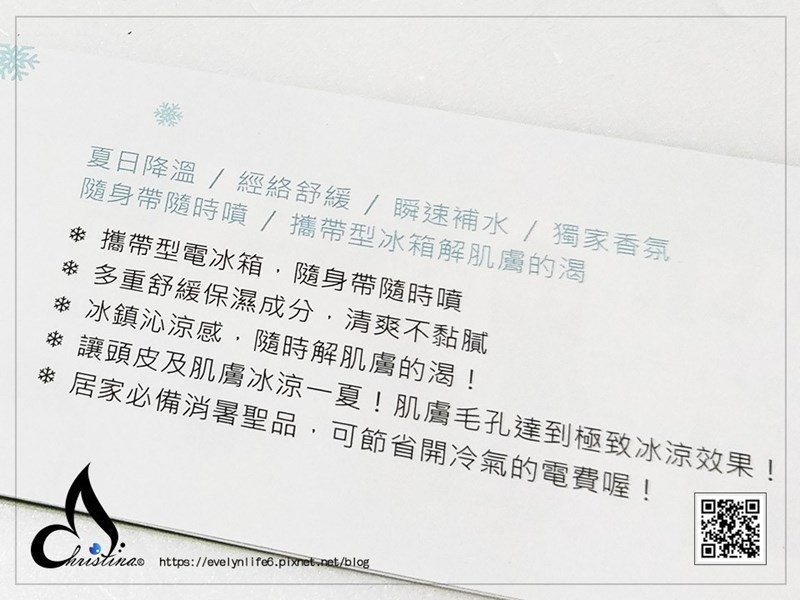 夏日降溫 / 經絡舒緩 / 瞬速補水 / 獨家香氛
隨身帶隨時噴 / 攜帶型冰箱解肌膚的渴
❄ 攜帶型電冰箱，隨身帶隨時噴
❄ 多重舒緩保濕成分，清爽不黏膩
❄ 冰鎮沁涼感，隨時解肌膚的渴！
❄ 讓頭皮及肌膚冰涼一夏！肌膚毛孔達到極致冰涼效果！
❄ 居家必備消暑聖品，可節省開冷氣的電費喔！
Christina©
https://evelynlife6.pixnet.net/blog